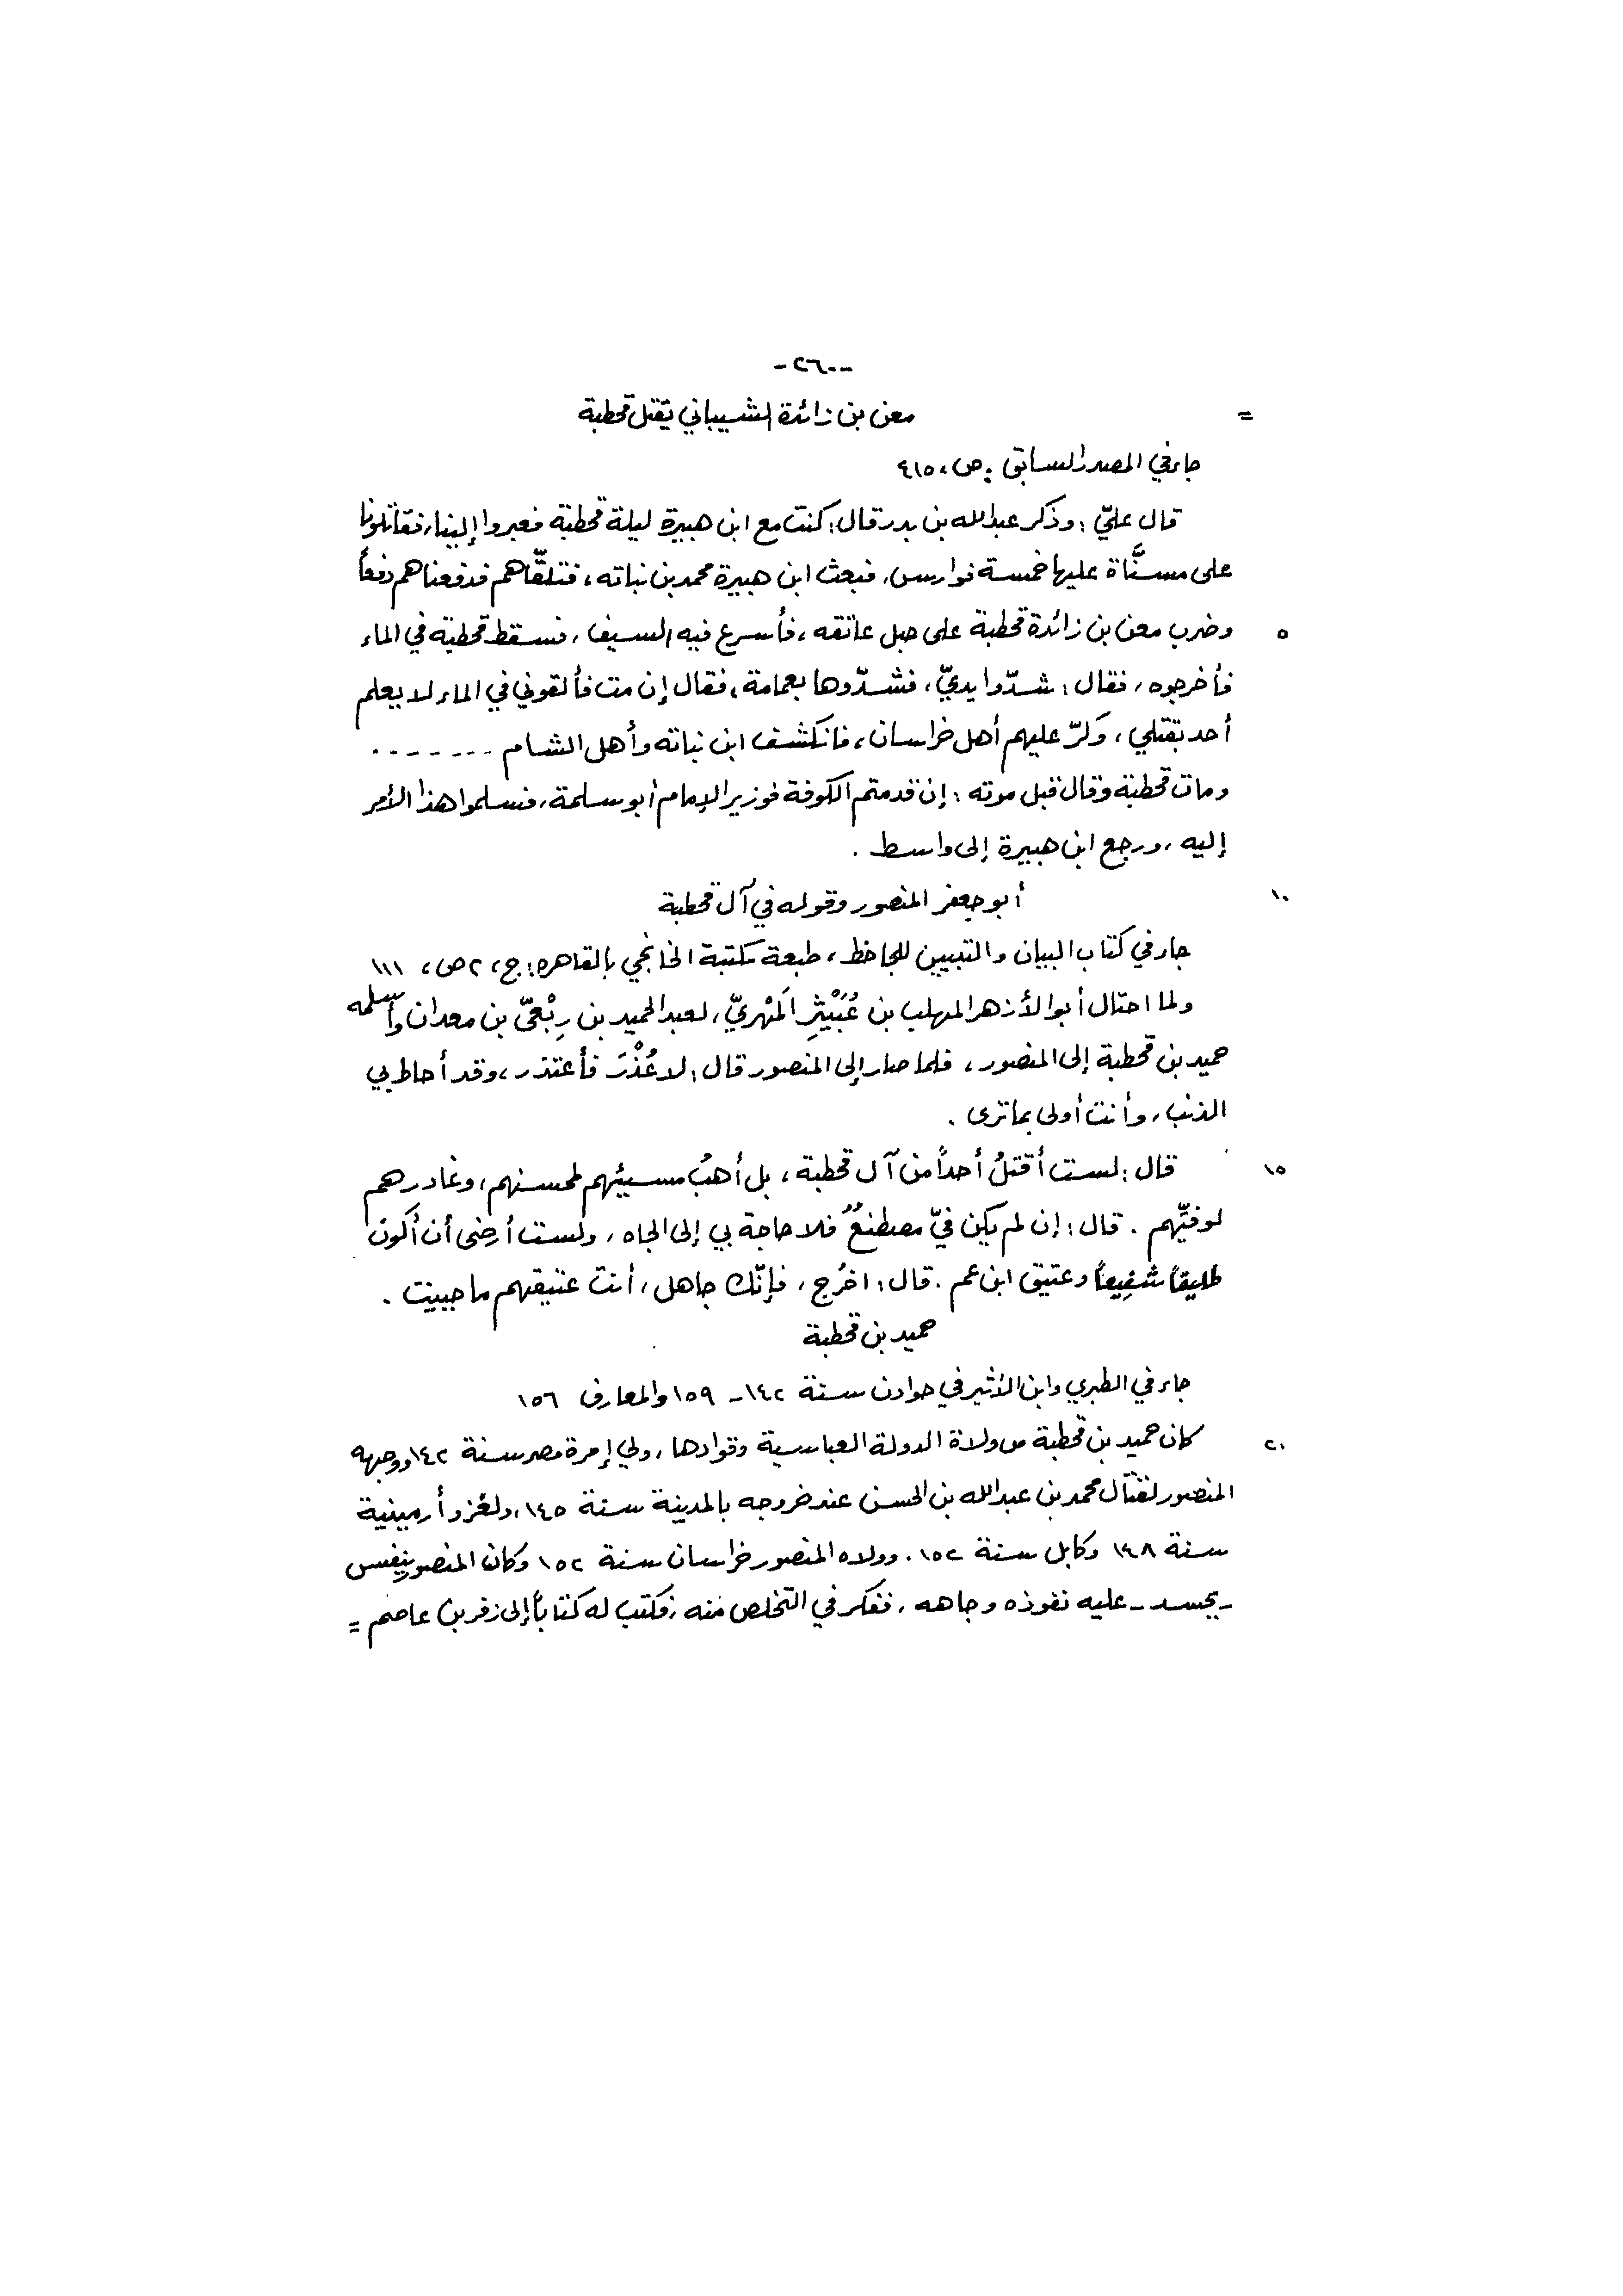 -٢٦٠-
= معن بن زائدة الشيباني يقتل قحطبة
جاء في المصدر السابق . ص، ٤١٥
قال عليّ : وذكر عبدالله بن بدر قال: كنت مع ابن هبيرة ليلة قحطبة فعبروا إلينا، فقاتلونا
على مسنَّاة عليها خمسة فوارس، فبعث ابن هبيرة محمد بن نباته، فتلقّاهم فدفعناهم دفعاً
٥ وضرب معن بن زائدة قحطبة على حبل عاتقه، فأسرع فيه السيف، فسقط قحطبة في الماء
فأخرجوه، فقال: شدّوا يديّ، فشدّوها بعمامة، فقال إن مت فألقوني في الماء لا يعلم
أحد بقتلي، وكرّ عليهم أهل خراسان، فانكشف ابن نباته وأهل الشام - - - - - - -
ومات قحطبة وقال قبل موته : إن قدمتم الكوفة فوزير الإمام أبو سلمة، فسلموا هذا الأمر
إليه، ورجع ابن هبيرة إلى واسط .
١٠ أبو جعفر المنصور وقوله في آل قحطبة
جاء في كتاب البيان والتبيين للجاحظ، طبعة مكتبة الخانجي بالقاهره: ج، ٢ ص، ١١١
ولما احتال أبو الأزهر المهلب بن عُبَيْثِرٍ المَهْريّ، لعبد الحميد بن رِبْعيّ بن معدان وأسلمه
حميد بن قحطبة إلى المنصور، فلما صار إلى المنصور قال: لا عُذْرَ فأعتذر، وقد أحاط بي
الذنب، وأنت أولى بما ترى .
١٥ قال : لست أقتلُ أحداً من آل قحطبة، بل أهبُ مسيئهم لمحسنهم، وغادرهم
لوفيّهم . قال : إن لم يكن فيّ مصطنعٌ فلا حاجة بي إلى الجاه، ولست أرضى أن أكون
طليقاً شفيعاً وعتيق ابن عم . قال: اخرُج، فإنّك جاهل، أنت عتيقهم ما حييت .
حميد بن قحطبة
جاء في الطبري وابن الأثير في حوادث سنة ١٤٢ـ ١٥٩ والمعارف ١٥٦
٢٠ كان حميد بن قحطبة من ولاة الدولة العباسية وقوادها، ولي إمرة مصر سنة ١٤٢ ووجهه
المنصور لقتال محمد بن عبدالله بن الحسن عند خروجه بالمدينة سنة ١٤٥، ولغزو أرمينية
سنة ١٤٨ وكابل سنة ١٥٢. وولاه المنصور خراسان سنة ١٥٢ وكان المنصور ينفس
ـ يحسد ـ عليه نفوذه وجاهه، ففكر في التخلص منه، فكتب له كتاباً إلى زفر بن عاصم =